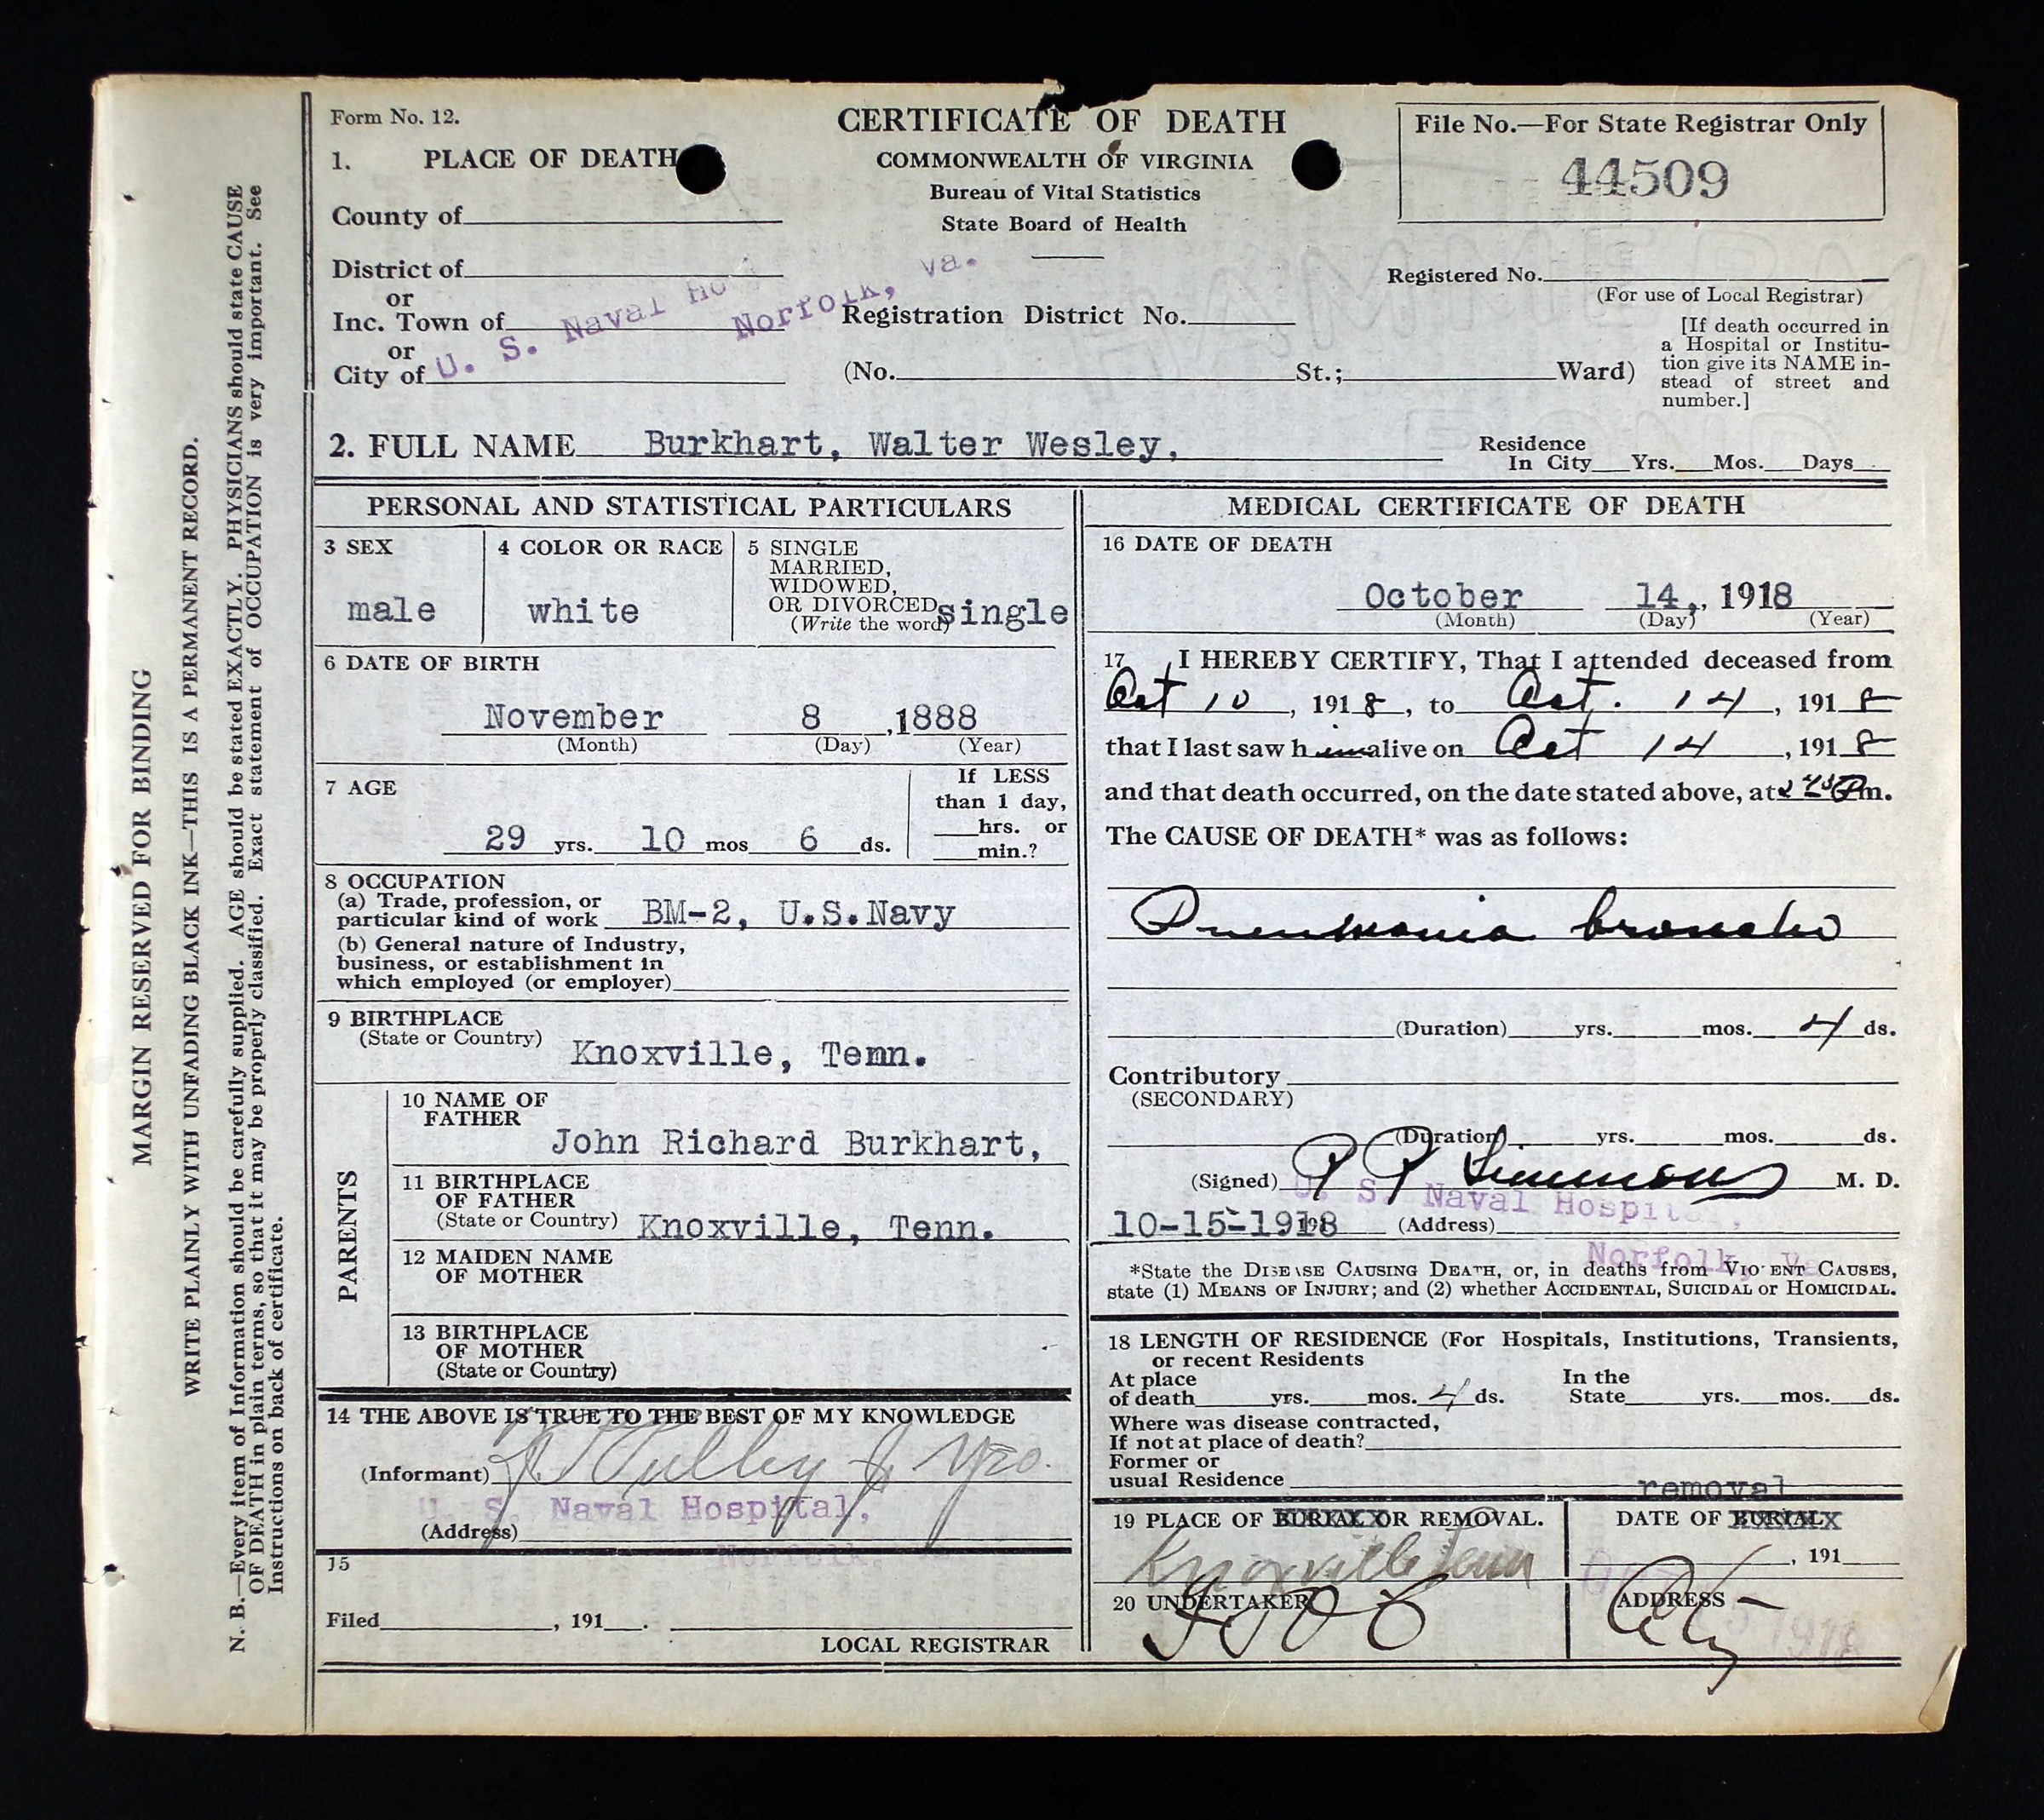 MARGIN RESERVED FOR BINDING
WRITE PLAINLY WITH UNFADING BLACK INK—THIS IS A PERMANENT RECORD.
N. B.—Every item of Information should be carefully supplied. AGE should be stated EXACTLY. PHYSICIANS should state CAUSE
OF DEATH in plain terms, so that it may be properly classified. Exact statement of OCCUPATION is very important. See
Instructions on back of certificate.
Form No. 12.
CERTIFICATE OF DEATH
COMMONWEALTH OF VIRGINIA
Bureau of Vital Statistics
State Board of Health
File No.—For State Registrar Only
44509
1. PLACE OF DEATH
County of
District of
or
Inc. Town of
or
City of
U. S. Naval Ho
Norfolk, Va.
Registration District No.
Registered No.
(For use of Local Registrar)
(No. St.; Ward)
[If death occurred in
a Hospital or Institu-
tion give its NAME in-
stead of street and
number.]
2. FULL NAME Burkhart, Walter Wesley,
Residence
In City Yrs. Mos. Days
PERSONAL AND STATISTICAL PARTICULARS
3 SEX
male
4 COLOR OR RACE
white
5 SINGLE
MARRIED,
WIDOWED,
OR DIVORCED
(Write the word) single
6 DATE OF BIRTH
November 8, 1888
(Month) (Day) (Year)
7 AGE
29 yrs. 10 mos 6 ds.
If LESS
than 1 day,
hrs. or
min.?
8 OCCUPATION
(a) Trade, profession, or
particular kind of work BM-2, U.S.Navy
(b) General nature of Industry,
business, or establishment in
which employed (or employer)
9 BIRTHPLACE
(State or Country) Knoxville, Tenn.
PARENTS
10 NAME OF
FATHER
John Richard Burkhart,
11 BIRTHPLACE
OF FATHER
(State or Country) Knoxville, Tenn.
12 MAIDEN NAME
OF MOTHER
13 BIRTHPLACE
OF MOTHER
(State or Country)
14 THE ABOVE IS TRUE TO THE BEST OF MY KNOWLEDGE
(Informant)
U. S. Naval Hospital,
(Address)
Norfolk,
15
Filed , 191 .
LOCAL REGISTRAR
MEDICAL CERTIFICATE OF DEATH
16 DATE OF DEATH
October 14, 1918
(Month) (Day) (Year)
17 I HEREBY CERTIFY, That I attended deceased from
Oct 10, 1918, to Oct. 14, 1918
that I last saw him alive on Oct 14, 1918
and that death occurred, on the date stated above, at Pm.
The CAUSE OF DEATH* was as follows:
Pneumonia broncho
(Duration) yrs. mos. 4 ds.
Contributory
(SECONDARY)
(Duration) yrs. mos. ds.
(Signed) Simmons M. D.
U. S. Naval Hospital,
10-15-1918 191 (Address)
Norfolk, Va
*State the DISEASE CAUSING DEATH, or, in deaths from VIOLENT CAUSES,
state (1) MEANS OF INJURY; and (2) whether ACCIDENTAL, SUICIDAL or HOMICIDAL.
18 LENGTH OF RESIDENCE (For Hospitals, Institutions, Transients,
or recent Residents
At place
of death yrs. mos. 4 ds.
In the
State yrs. mos. ds.
Where was disease contracted,
If not at place of death?
Former or
usual Residence
removal
19 PLACE OF BURIAL OR REMOVAL.
Knoxville Tenn
DATE OF BURIAL
, 191
20 UNDERTAKER
ADDRESS
City
1918